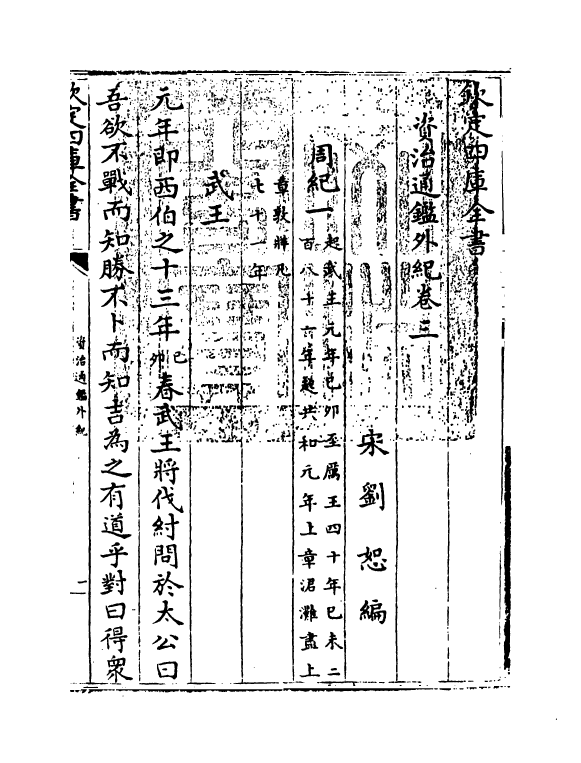 欽定四庫全書
資治通鑑外紀卷三
宋劉恕編
周紀一
起武王元年己卯至厲王四十年己未二
百八十六年起共和元年上章涒灘盡上
章敦牂凡
七十一年
武王
元年即西伯之十三年己卯春武王將伐紂問於太公曰
吾欲不戰而知勝不卜而知吉為之有道乎對曰得衆
欽定四庫全書
資治通鑑外紀